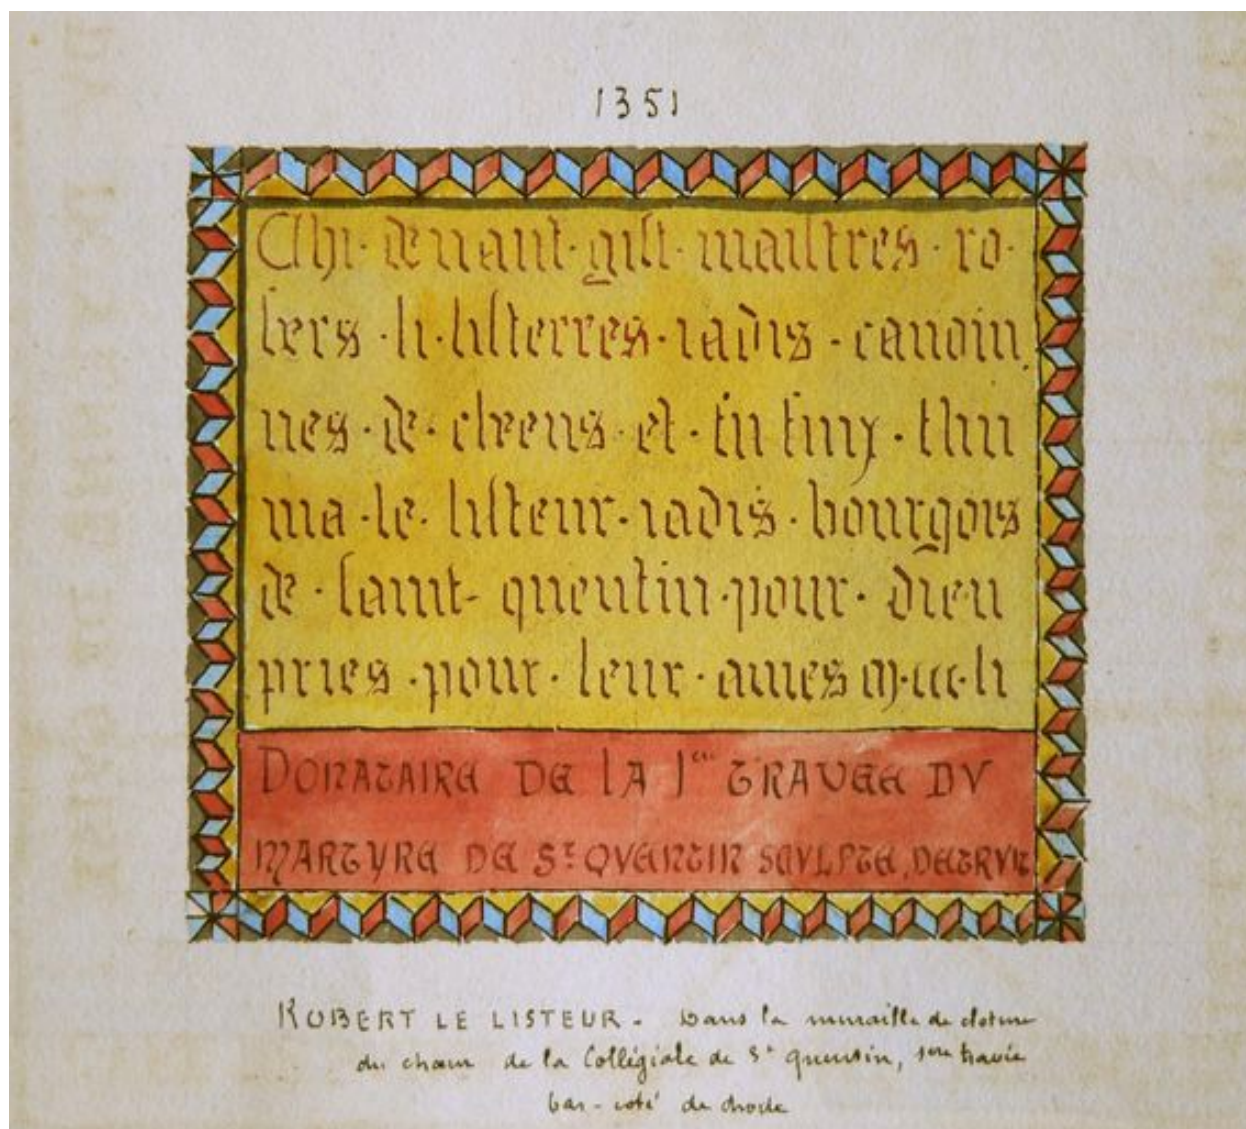 1351
Chi · devant · gist · maistres · ro-
bers · li · listerres · iadis · canoin
nes · de · cheens · et · fu fiux · thu
ma · le · listeur · iadis · bourgois
de · saint - quentin · pour · dieu
pries · pour · leur · ames m · ccc · li
DONATAIRE DE LA 1ere TRAVEE DV
MARTYRE DE St QVENTIN SCVLPTE, DETRVIT
ROBERT LE LISTEUR - Dans la muraille de cloture
du chœur de la Collégiale de St quentin, 1ere travée
bas-coté de droite